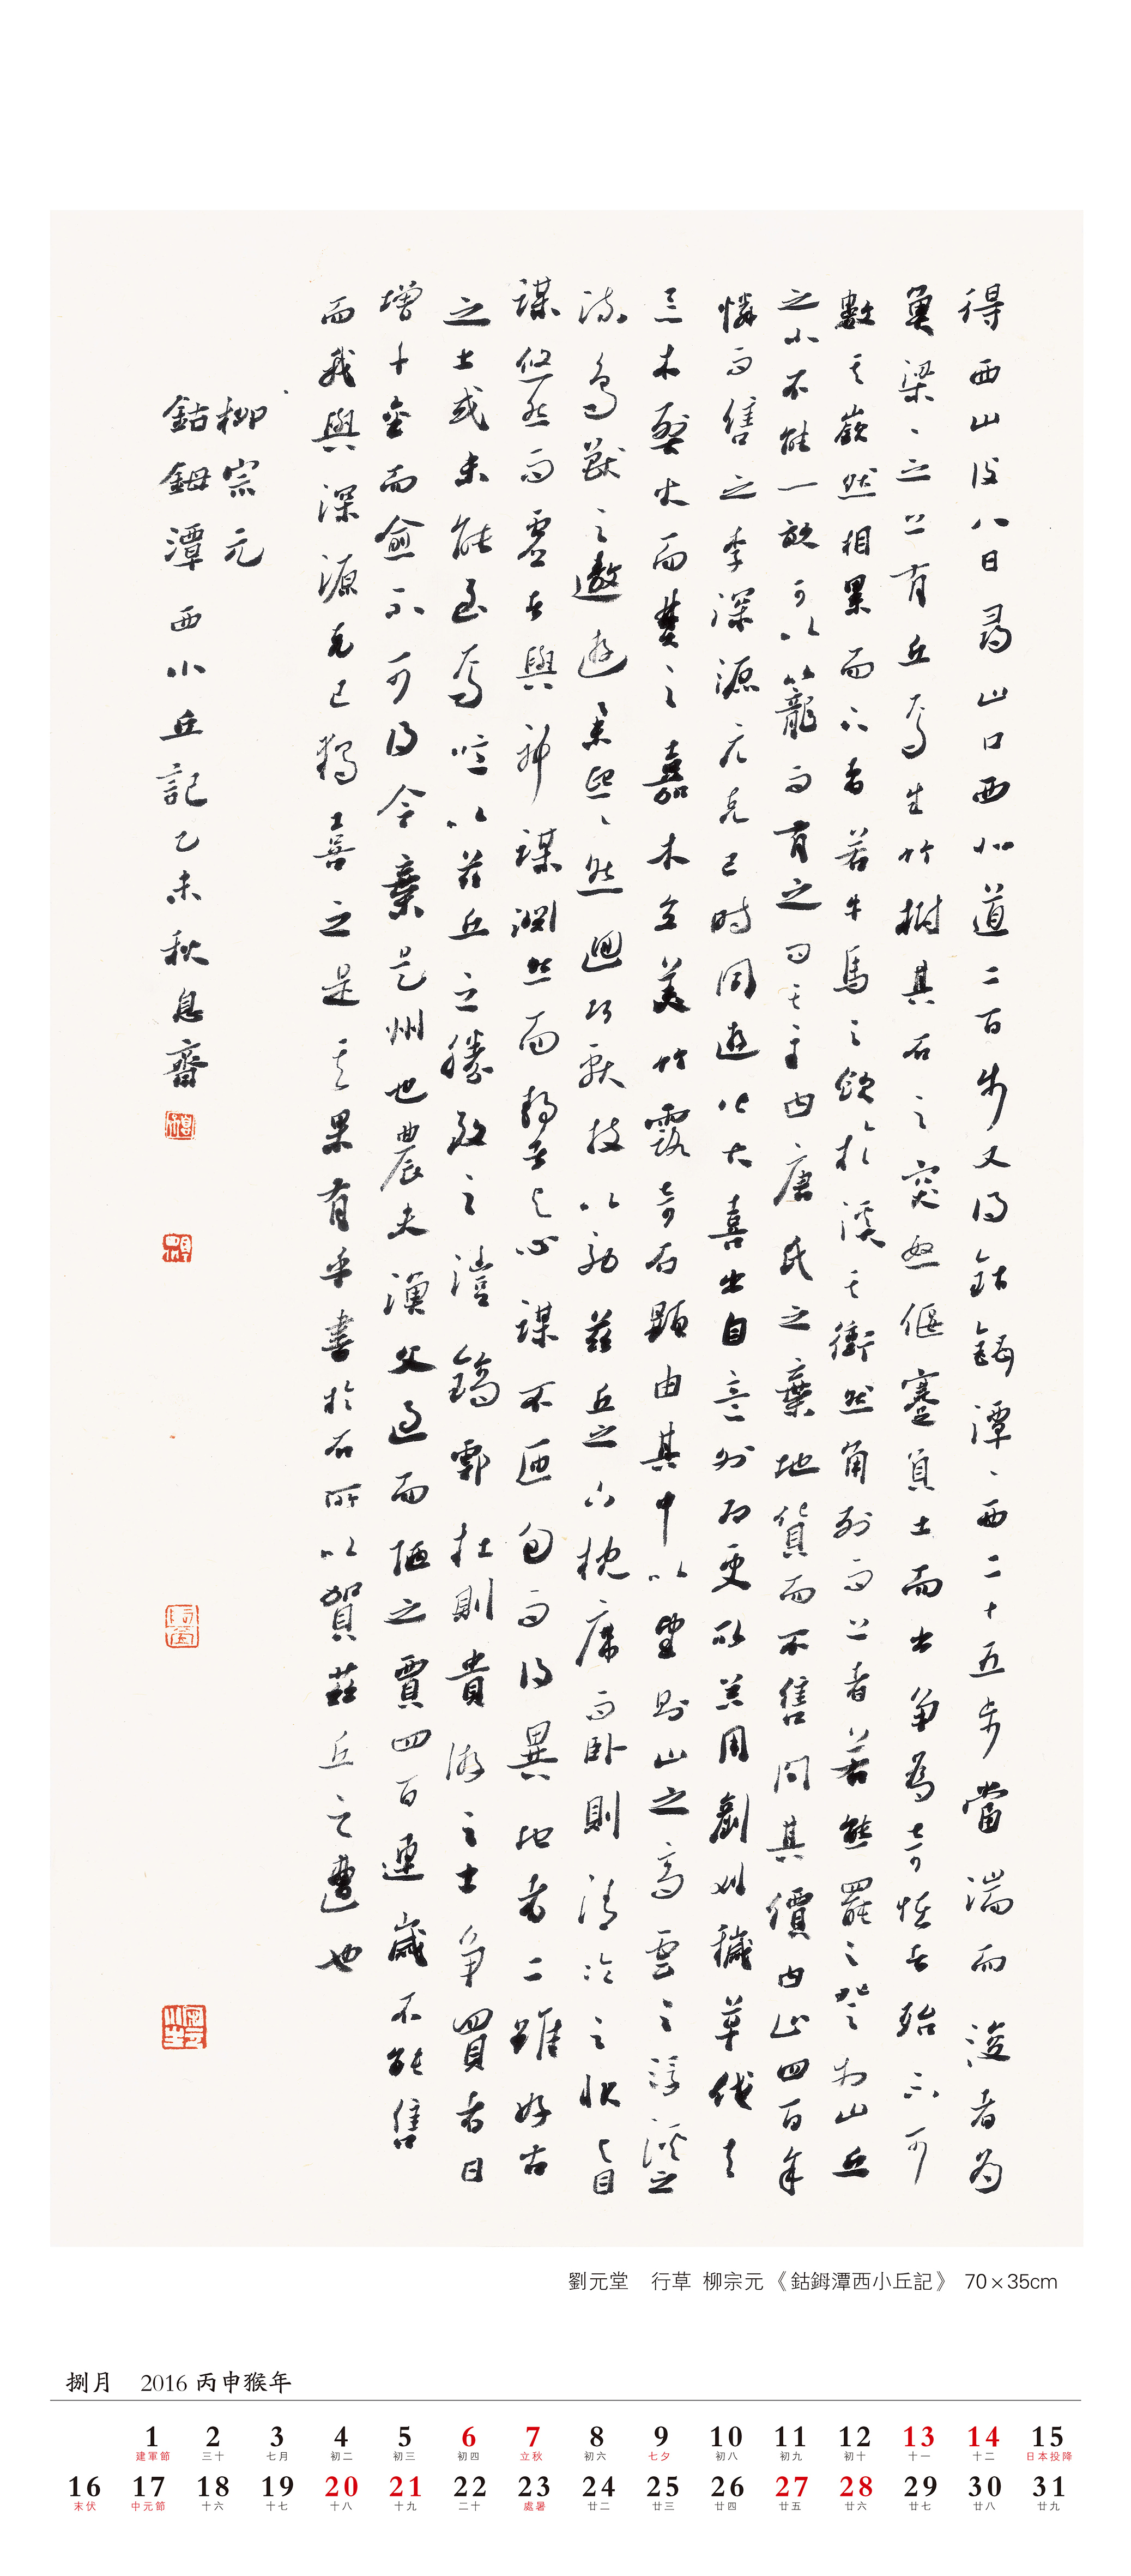 得西山後八日尋山口西北道二百步又得鈷鉧潭々西二十五步當湍而浚者為
魚梁々之上有丘焉生竹樹其石之突怒偃蹇負土而出爭為奇怪者殆不可
數其嶔然相累而下者若牛馬之飲於溪其衝然角列而上者若熊羆之登於山丘
之小不能一畝可以籠而有之問其主曰唐氏之棄地貨而不售問其價曰止四百余
憐而售之李深源元克己時同遊皆大喜出自意外即更取器用剷刈穢草伐去
惡木烈火而焚之嘉木立美竹露奇石顯由其中以望則山之高雲之浮溪之
流鳥獸之遨遊舉熙々然迴巧獻技以效茲丘之下枕席而臥則清泠之狀與目
謀悠然而虛者與神謀淵然而靜者與心謀不匝旬而得異地者二雖好古
之士或未能至焉噫以茲丘之勝致之灃鎬鄠杜則貴游之士爭買者日
增千金而愈不可得今棄是州也農夫漁父過而陋之賈四百連歲不能售
而我與深源克己獨喜之是其果有乎書於石所以賀茲丘之遭也
柳宗元
鈷鉧潭西小丘記乙未秋息齋
劉元堂 行草 柳宗元《鈷鉧潭西小丘記》 70×35cm
捌月 2016 丙申猴年
1 2 3 4 5 6 7 8 9 10 11 12 13 14 15
建軍節 三十 七月 初二 初三 初四 立秋 初六 七夕 初八 初九 初十 十一 十二 日本投降
16 17 18 19 20 21 22 23 24 25 26 27 28 29 30 31
末伏 中元節 十六 十七 十八 十九 二十 處暑 廿二 廿三 廿四 廿五 廿六 廿七 廿八 廿九